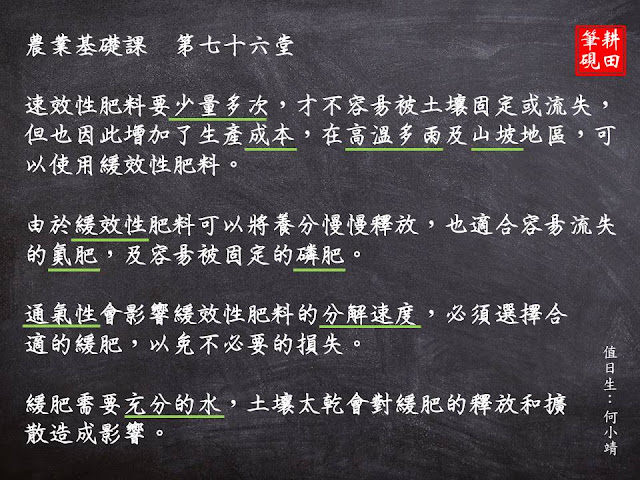 農業基礎課　第七十六堂
耕田
筆硯
速效性肥料要少量多次，才不容易被土壤固定或流失，
但也因此增加了生產成本，在高溫多雨及山坡地區，可
以使用緩效性肥料。
由於緩效性肥料可以將養分慢慢釋放，也適合容易流失
的氮肥，及容易被固定的磷肥。
通氣性會影響緩效性肥料的分解速度，必須選擇合
適的緩肥，以免不必要的損失。
緩肥需要充分的水，土壤太乾會對緩肥的釋放和擴
散造成影響。
值日生：何小靖